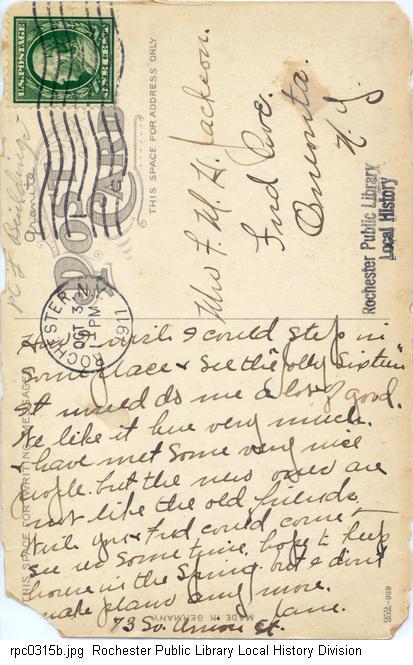 U.S. POSTAGE
POST CARD
THIS SPACE FOR ADDRESS ONLY
Building
Granite
ROCHESTER
OCT 3
PM
1911
N.Y.
Mrs F. M. H. Jackson.
Fred Roe.
Oneonta.
N.Y.
Rochester Public Library
Local History
THIS SPACE FOR WRITING MESSAGES
How I wish I could step in
some place & see the "jolly Sixteen"
It would do me a lot of good.
We like it here very much.
I have met some very nice
people. but the new ones are
not like the old friends,
Wish you & Fred could come
see us sometime, hope to keep
house in the Spring. but I don't
make plans any more.
Jane.
73 So. Union St.
MADE IN GERMANY
252-939
rpc0315b.jpg Rochester Public Library Local History Division